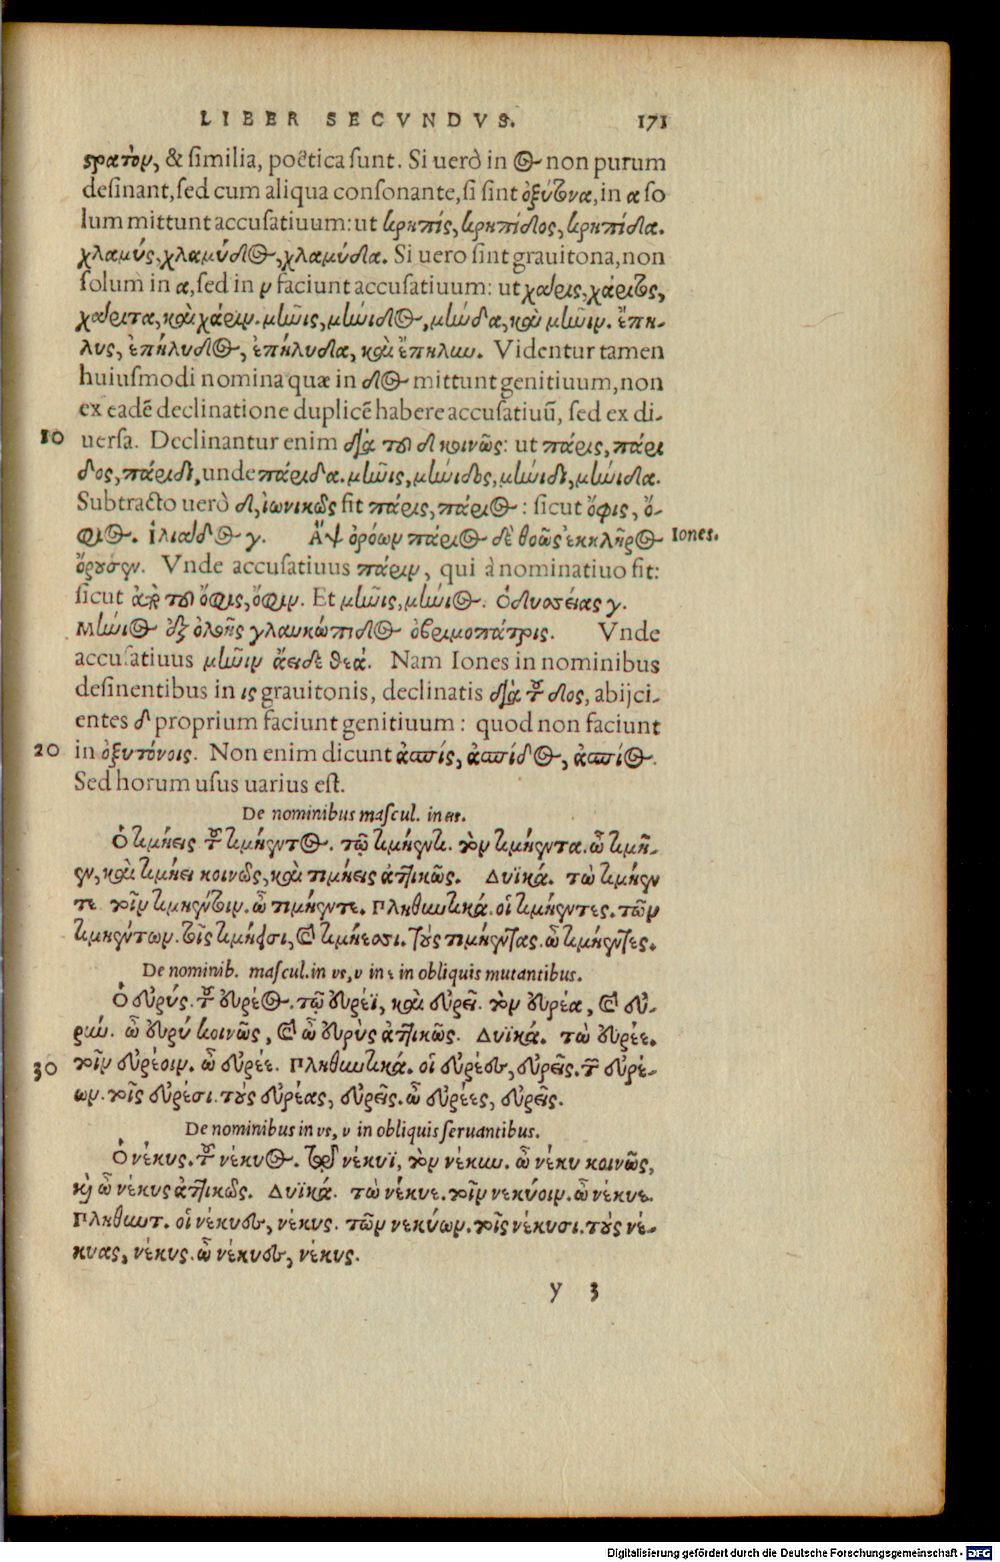 LIBER SECVNDVS. 171
ϛρατὸν, & similia, poëtica sunt. Si uerò in ος non purum
desinant, sed cum aliqua consonante, si sint ὀξύτονα, in α so
lum mittunt accusatiuum: ut κρηπίς, κρηπίδος, κρηπίδα.
χλαμύς, χλαμύδος, χλαμύδα. Si uero sint grauitona, non
solum in α, sed in ν faciunt accusatiuum: ut χάρις, χάριτος,
χάριτα, καὶ χάριν. μῆνις, μήνιδος, μήνιδα, καὶ μῆνιν. ἔπη-
λυς, ἐπήλυδος, ἐπήλυδα, καὶ ἔπηλυν. Videntur tamen
huiusmodi nomina quæ in δος mittunt genitiuum, non
ex eadē declinatione duplicē habere accusatiuū, sed ex di-
10 uersa. Declinantur enim διὰ τοῦ δ κοινῶς: ut πάρις, πάρι
δος, πάριδι, unde πάριδα. μῆνις, μήνιδος, μήνιδι, μήνιδα.
Subtracto uerò δ, ἰωνικῶς fit πάρις, πάριος: sicut ὄφις, ὄ-
φιος. ἰλιάδος γ. Ἂψ ὀρόων πάριος δὲ θοῶς ἐκκλῆρος Iones.
ὄρουσεν. Vnde accusatiuus πάριν, qui à nominatiuo fit:
sicut ἀπὸ τοῦ ὄφις, ὄφιν. Et μῆνις, μήνιος. Ὀδυσσείας γ.
Μήνιος ἐξ ὀλοῆς γλαυκώπιδος ὀβριμοπάτρις. Vnde
accusatiuus μῆνιν ἄειδε θεά. Nam Iones in nominibus
desinentibus in ις grauitonis, declinatis διὰ τοῦ δος, abijci-
entes δ proprium faciunt genitiuum: quod non faciunt
20 in ὀξυτόνοις. Non enim dicunt ἀσπίς, ἀσπίδος, ἀσπίος.
Sed horum usus uarius est.
De nominibus mascul. in εις.
Ὁ τιμήεις τοῦ τιμήεντος. τῷ τιμήεντι. τὸν τιμήεντα. ὦ τιμῆ-
εν, καὶ τιμήει κοινῶς, καὶ τιμήεις ἀττικῶς. Δυϊκά. τὼ τιμήεν
τε τοῖν τιμηέντοιν. ὦ τιμήεντε. Πληθυντικά. οἱ τιμήεντες. τῶν
τιμηέντων. τοῖς τιμήεσι, καὶ τιμήεσσι. τοὺς τιμήεντας. ὦ τιμήεντες.
De nominib. mascul. in υς, υ in ε in obliquis mutantibus.
Ὁ εὐρύς. τοῦ εὐρέος. τῷ εὐρέϊ, καὶ εὐρεῖ. τὸν εὐρέα, καὶ εὐ-
ρύν. ὦ εὐρύ κοινῶς, καὶ ὦ εὐρὺς ἀττικῶς. Δυϊκά. τὼ εὐρέε.
30 τοῖν εὐρέοιν. ὦ εὐρέε. Πληθυντικά. οἱ εὐρέες, εὐρεῖς. τῶν εὐρέ-
ων. τοῖς εὐρέσι. τοὺς εὐρέας, εὐρεῖς. ὦ εὐρέες, εὐρεῖς.
De nominibus in υς, υ in obliquis seruantibus.
Ὁ νέκυς. τοῦ νέκυος. τῷ νέκυϊ, τὸν νέκυν. ὦ νέκυ κοινῶς,
καὶ ὦ νέκυς ἀττικῶς. Δυϊκά. τὼ νέκυε. τοῖν νεκύοιν. ὦ νέκυε.
Πληθυντ. οἱ νέκυες, νέκυς. τῶν νεκύων. τοῖς νέκυσι. τοὺς νέ-
κυας, νέκυς. ὦ νέκυες, νέκυς.
y 3
Digitalisierung gefördert durch die Deutsche Forschungsgemeinschaft - DFG